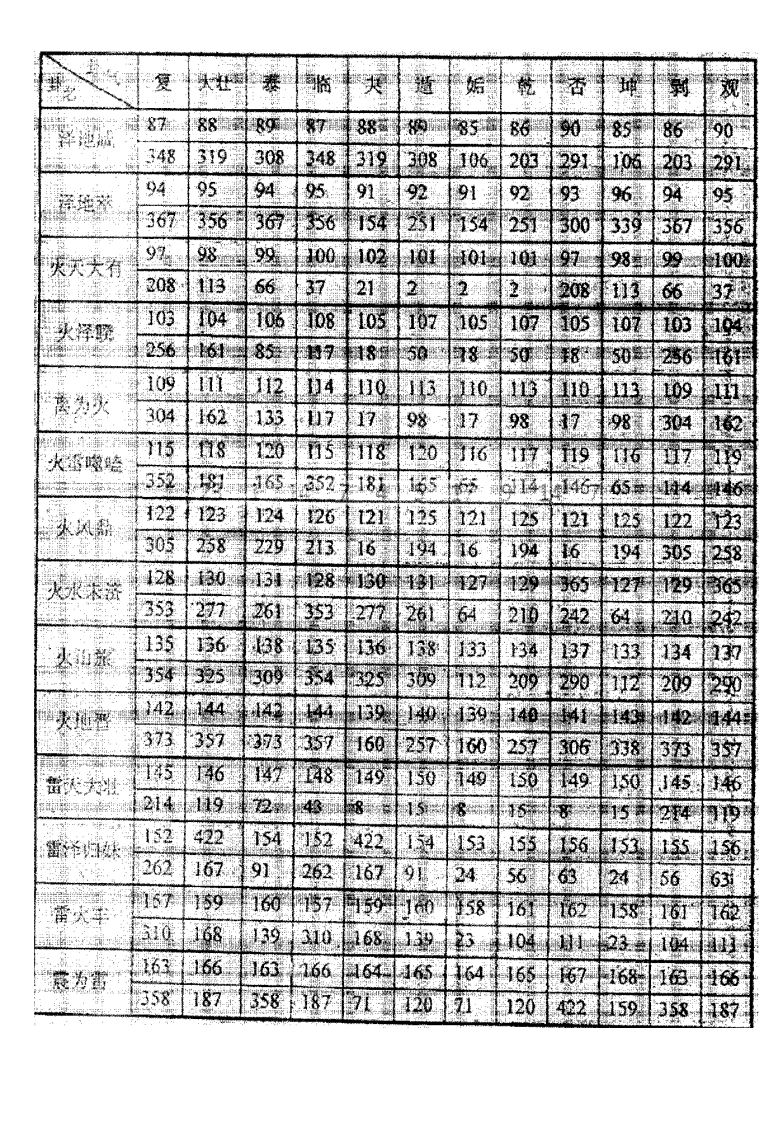 卦气 卦名 复 大壮 泰 临 夬 遁 姤 乾 否 坤 剥 观
泽地萃 87 88 89 87 88 89 85 86 90 85 86 90
348 319 308 348 319 308 106 203 291 106 203 291
94 95 94 95 91 92 91 92 93 96 94 95
367 356 367 356 154 251 154 251 300 339 367 356
火天大有 97 98 99 100 102 101 101 101 97 98 99 100
208 113 66 37 21 2 2 2 208 113 66 37
火泽睽 103 104 106 108 105 107 105 107 105 107 103 104
256 161 85 117 18 50 18 50 18 50 256 161
离为火 109 111 112 114 110 113 110 113 110 113 109 111
304 162 133 117 17 98 17 98 17 98 304 162
火雷噬嗑 115 118 120 115 118 120 116 117 119 116 117 119
352 181 165 352 181 165 65 114 146 65 114 146
火风鼎 122 123 124 126 121 125 121 125 121 125 122 123
305 258 229 213 16 194 16 194 16 194 305 258
火水未济 128 130 131 128 130 131 127 129 365 127 129 365
353 277 261 353 277 261 64 210 242 64 210 242
火山旅 135 136 138 135 136 138 133 134 137 133 134 137
354 325 309 354 325 309 112 209 290 112 209 290
火地晋 142 144 142 144 139 140 139 140 141 143 142 144
373 357 373 357 160 257 160 257 306 338 373 357
雷天大壮 145 146 147 148 149 150 149 150 149 150 145 146
214 119 72 43 8 15 8 15 8 15 214 119
雷泽归妹 152 422 154 152 422 154 153 155 156 153 155 156
262 167 91 262 167 91 24 56 63 24 56 63
雷火丰 157 159 160 157 159 160 158 161 162 158 161 162
310 168 139 310 168 139 23 104 111 23 104 111
震为雷 163 166 163 166 164 165 164 165 167 168 163 166
358 187 358 187 71 120 71 120 422 159 358 187